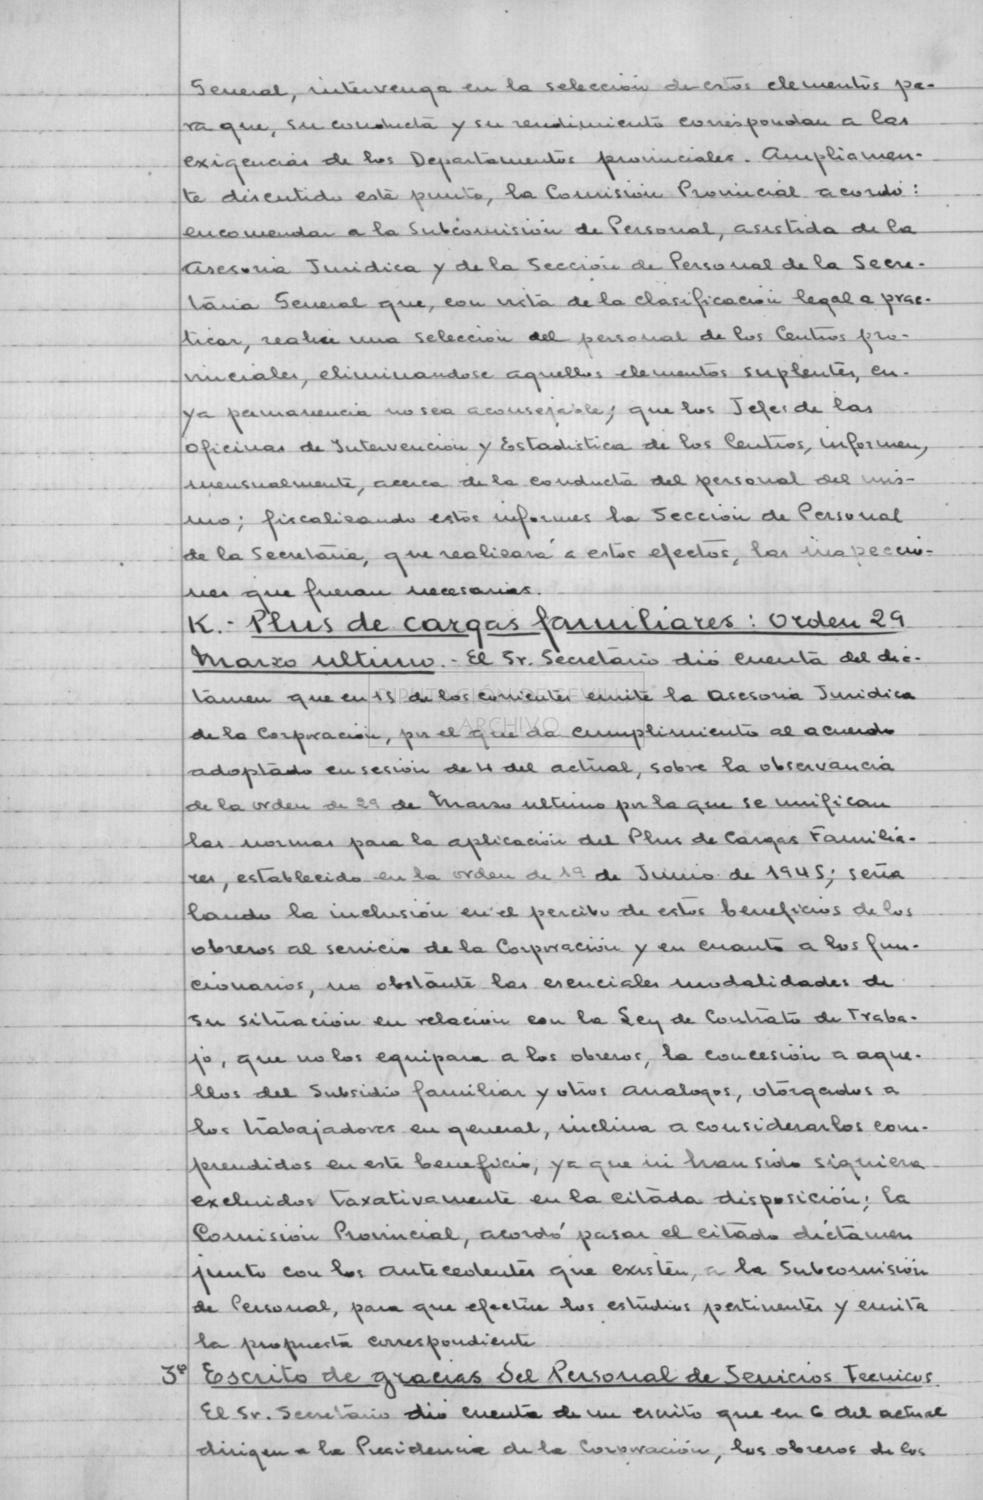 General, intervenga en la selección de estos elementos pa-
ra que, su conducta y su rendimiento correspondan a las
exigencias de los Departamentos provinciales. Ampliamen-
te discutido este punto, la Comisión Provincial acordó:
encomendar a la Subcomisión de Personal, asistida de la
Asesoria Juridica y de la Sección de Personal de la Secre-
taria General que, con vista de la clasificación legal a prac-
ticar, realice una selección del personal de los Centros pro-
vinciales, eliminandose aquellos elementos suplentes, cu-
ya permanencia no sea aconsejable; que los Jefes de las
Oficinas de Intervención y Estadistica de los Centros, informen,
mensualmente, acerca de la conducta del personal del mis-
mo; fiscalizando estos informes la Sección de Personal
de la Secretaria, que realizará a estos efectos, las inspeccio-
nes que fueran necesarias.
K.- Plus de cargas familiares: Orden 29
Marzo ultimo.- El Sr. Secretario dió cuenta del dic-
tamen que en 15 de los corrientes emite la Asesoria Juridica
de la Corporación, por el que da cumplimiento al acuerdo
ARCHIVO
adoptado en sesión de 4 del actual, sobre la observancia
de la orden de 29 de Marzo ultimo por la que se unifican
las normas para la aplicación del Plus de Cargas Familia-
res, establecido en la orden de 19 de Junio de 1945; seña
lando la inclusión en el percibo de estos beneficios de los
obreros al servicio de la Corporación y en cuanto a los fun-
cionarios, no obstante las esenciales modalidades de
su situación en relación con la Ley de Contrato de Traba-
jo, que no los equipara a los obreros, la concesión a aque-
llos del Subsidio familiar y otros analogos, otorgados a
los trabajadores en general, inclina a considerarlos com-
prendidos en este beneficio, ya que ni han sido siquiera
excluidos taxativamente en la citada disposición; la
Comisión Provincial, acordó pasar el citado dictamen
junto con los antecedentes que existen, a la Subcomisión
de Personal, para que efectúe los estudios pertinentes y emita
la propuesta correspondiente
3º Escrito de gracias del Personal de Servicios Tecnicos.
El Sr. Secretario dió cuenta de un escrito que en 6 del actual
dirigen a la Presidencia de la Corporación, los obreros de los